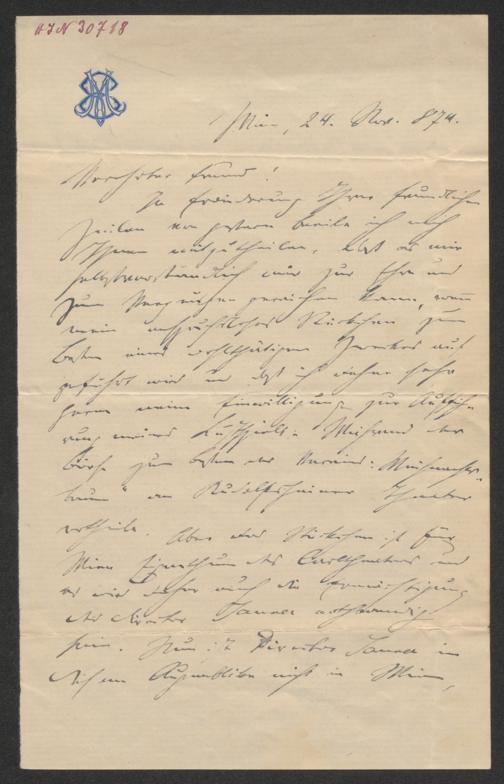 H.I.N. 30718
Wien, 24. Nov. 874.
Verehrter Freund!
In Erwiderung Ihrer freundlichen
Zeilen von gestern beeile ich mich
Ihnen mitzutheilen, daß es mir
selbstverständlich nur zur Ehre und
zum Vergnügen gereichen kann, wenn
mein anspruchsloses Stückchen zum
besten eines wohlthätigen Zweckes auf
geführt wird und daß ich daher sehr
gerne meine Einwilligung zur Auffüh-
rung meines Lustspiels: Während der
Börse zum besten des Vereins: "Weihnachts-
baum" im Rudolfsheimer Theater
ertheile. Aber das Stückchen ist für
Wien Eigenthum des Carltheaters und
es wird daher auch die Ermächtigung
des Director Jauner nothwendig
sein. Nun ist Director Jauner im
diesem Augenblicke nicht in Wien,